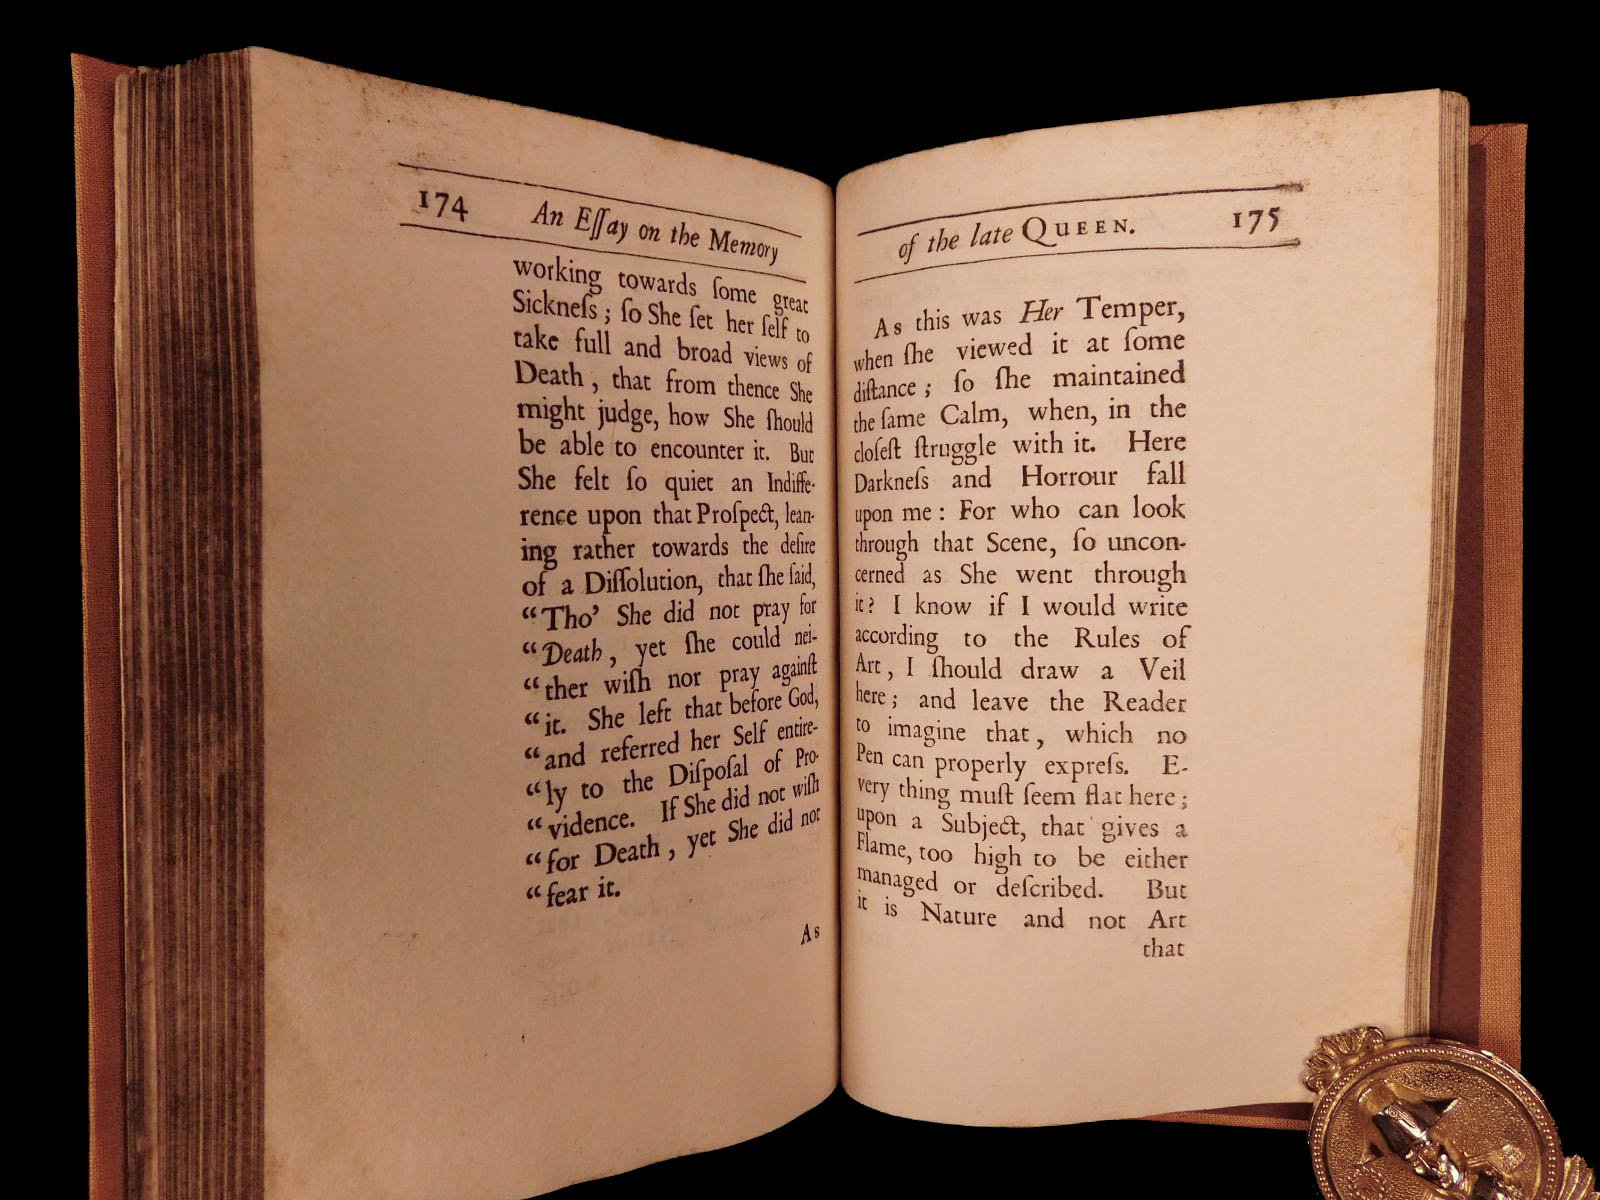 174 An Eſſay on the Memory
working towards ſome great
Sickneſs; ſo She ſet her ſelf to
take full and broad views of
Death, that from thence She
might judge, how She ſhould
be able to encounter it. But
She felt ſo quiet an Indiffe-
rence upon that Proſpect, lean-
ing rather towards the deſire
of a Diſſolution, that ſhe ſaid,
“Tho’ She did not pray for
“Death, yet ſhe could nei-
“ther wiſh nor pray againſt
“it. She left that before God,
“and referred her Self entire-
“ly to the Diſpoſal of Pro-
“vidence. If She did not wiſh
“for Death, yet She did not
“fear it.
As
of the late QUEEN. 175
As this was Her Temper,
when ſhe viewed it at ſome
diſtance; ſo ſhe maintained
the ſame Calm, when, in the
cloſeſt ſtruggle with it. Here
Darkneſs and Horrour fall
upon me: For who can look
through that Scene, ſo uncon-
cerned as She went through
it? I know if I would write
according to the Rules of
Art, I ſhould draw a Veil
here; and leave the Reader
to imagine that, which no
Pen can properly expreſs. E-
very thing muſt ſeem flat here;
upon a Subject, that gives a
Flame, too high to be either
managed or deſcribed. But
it is Nature and not Art
that